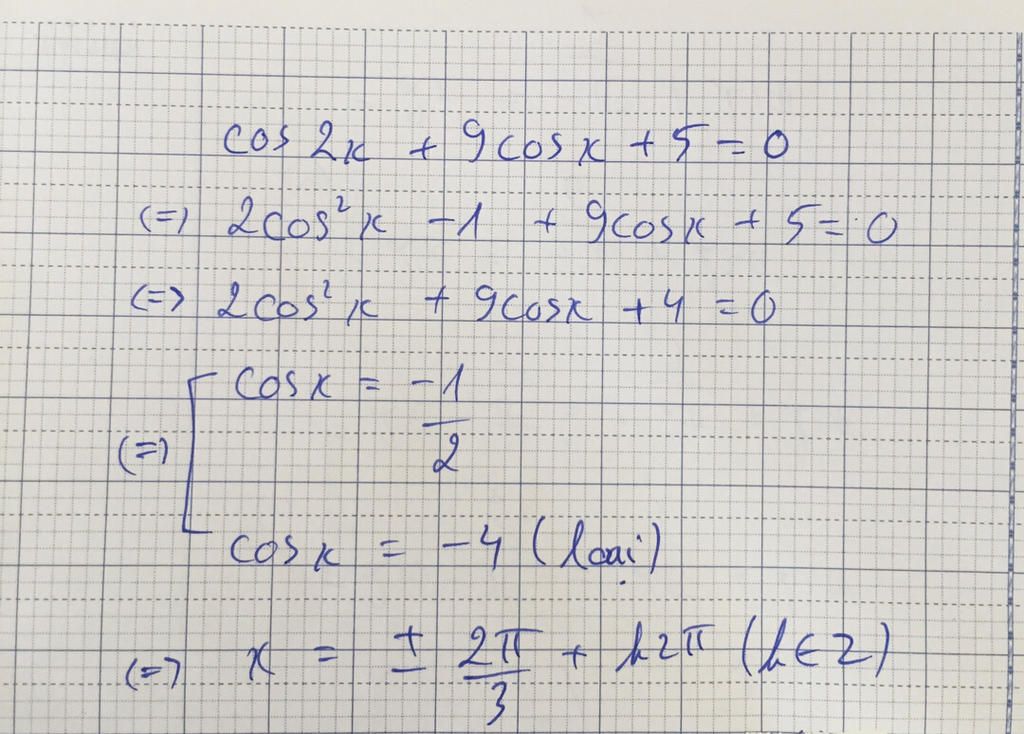 cos 2x + 9cosx + 5 = 0
(=) 2cos²x - 1 + 9cosx + 5 = 0
(=> 2cos²x + 9cosx + 4 = 0
(=) [ cosx = -1/2
cosx = -4 (loại)
(=) x = ± 2π/3 + k2π (k∈Z)